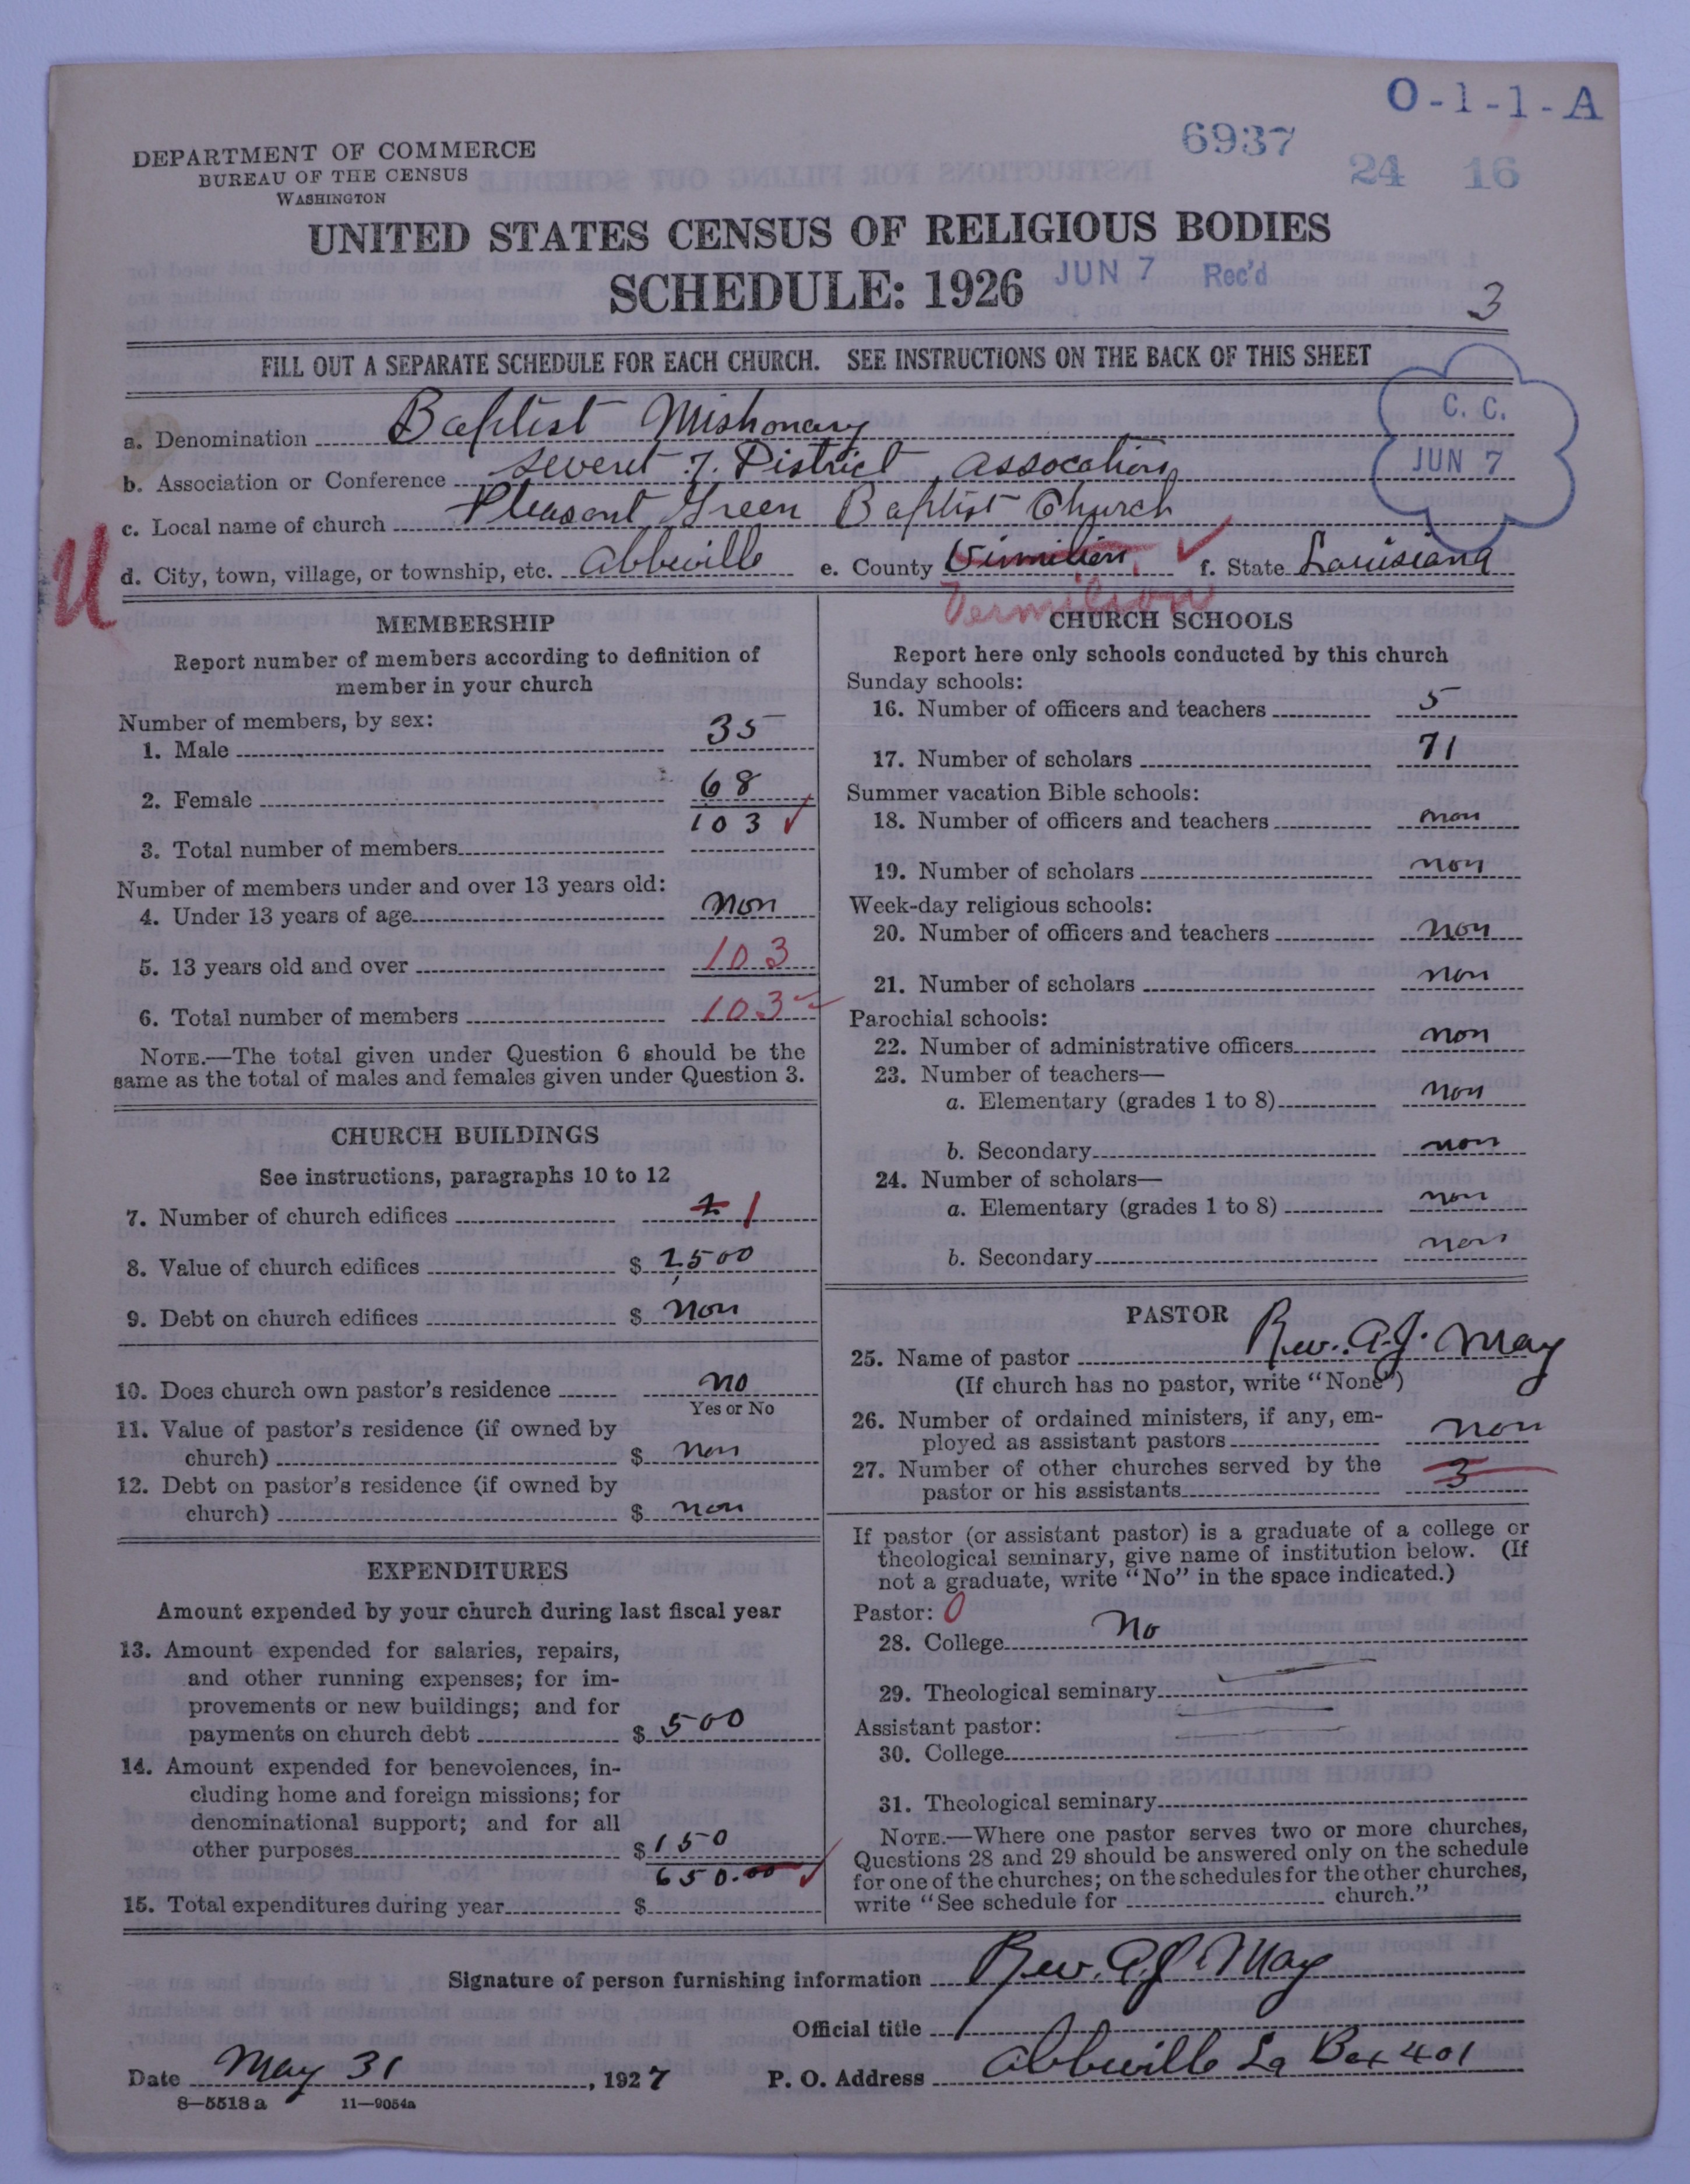 O-1-1-A
6937
24 16
DEPARTMENT OF COMMERCE
BUREAU OF THE CENSUS
WASHINGTON
UNITED STATES CENSUS OF RELIGIOUS BODIES
SCHEDULE: 1926
JUN 7 Rec'd
3
FILL OUT A SEPARATE SCHEDULE FOR EACH CHURCH. SEE INSTRUCTIONS ON THE BACK OF THIS SHEET
C. C.
JUN 7
a. Denomination Baptist Mishonary
b. Association or Conference 7. District Assocation
c. Local name of church Pleasant Green Baptist Church
U
d. City, town, village, or township, etc. Abbeville e. County f. State Louisiana
Vermilion
MEMBERSHIP
Report number of members according to definition of
member in your church
Number of members, by sex:
1. Male 35
2. Female 68
3. Total number of members 103
Number of members under and over 13 years old:
4. Under 13 years of age non
5. 13 years old and over 103
6. Total number of members 103
NOTE.—The total given under Question 6 should be the
same as the total of males and females given under Question 3.
CHURCH BUILDINGS
See instructions, paragraphs 10 to 12
7. Number of church edifices 1
8. Value of church edifices $ 2,500
9. Debt on church edifices $ non
10. Does church own pastor's residence no
Yes or No
11. Value of pastor's residence (if owned by
church) $ non
12. Debt on pastor's residence (if owned by
church) $ non
EXPENDITURES
Amount expended by your church during last fiscal year
13. Amount expended for salaries, repairs,
and other running expenses; for im-
provements or new buildings; and for
payments on church debt $ 500
14. Amount expended for benevolences, in-
cluding home and foreign missions; for
denominational support; and for all
other purposes $ 150
15. Total expenditures during year $ 650.00
CHURCH SCHOOLS
Report here only schools conducted by this church
Sunday schools:
16. Number of officers and teachers 5
17. Number of scholars 71
Summer vacation Bible schools:
18. Number of officers and teachers non
19. Number of scholars non
Week-day religious schools:
20. Number of officers and teachers non
21. Number of scholars non
Parochial schools:
22. Number of administrative officers non
23. Number of teachers—
a. Elementary (grades 1 to 8) non
b. Secondary non
24. Number of scholars—
a. Elementary (grades 1 to 8) non
b. Secondary non
PASTOR
25. Name of pastor Rev. A. J. May
(If church has no pastor, write "None")
26. Number of ordained ministers, if any, em-
ployed as assistant pastors non
27. Number of other churches served by the
pastor or his assistants 3
If pastor (or assistant pastor) is a graduate of a college or
theological seminary, give name of institution below. (If
not a graduate, write "No" in the space indicated.)
Pastor: 0
28. College No
29. Theological seminary
Assistant pastor:
30. College
31. Theological seminary
NOTE.—Where one pastor serves two or more churches,
Questions 28 and 29 should be answered only on the schedule
for one of the churches; on the schedules for the other churches,
write "See schedule for church."
Signature of person furnishing information Rev. A. J. May
Official title
Date May 31, 1927 P. O. Address Abbeville La Box 401
8—5518 a 11—9054a